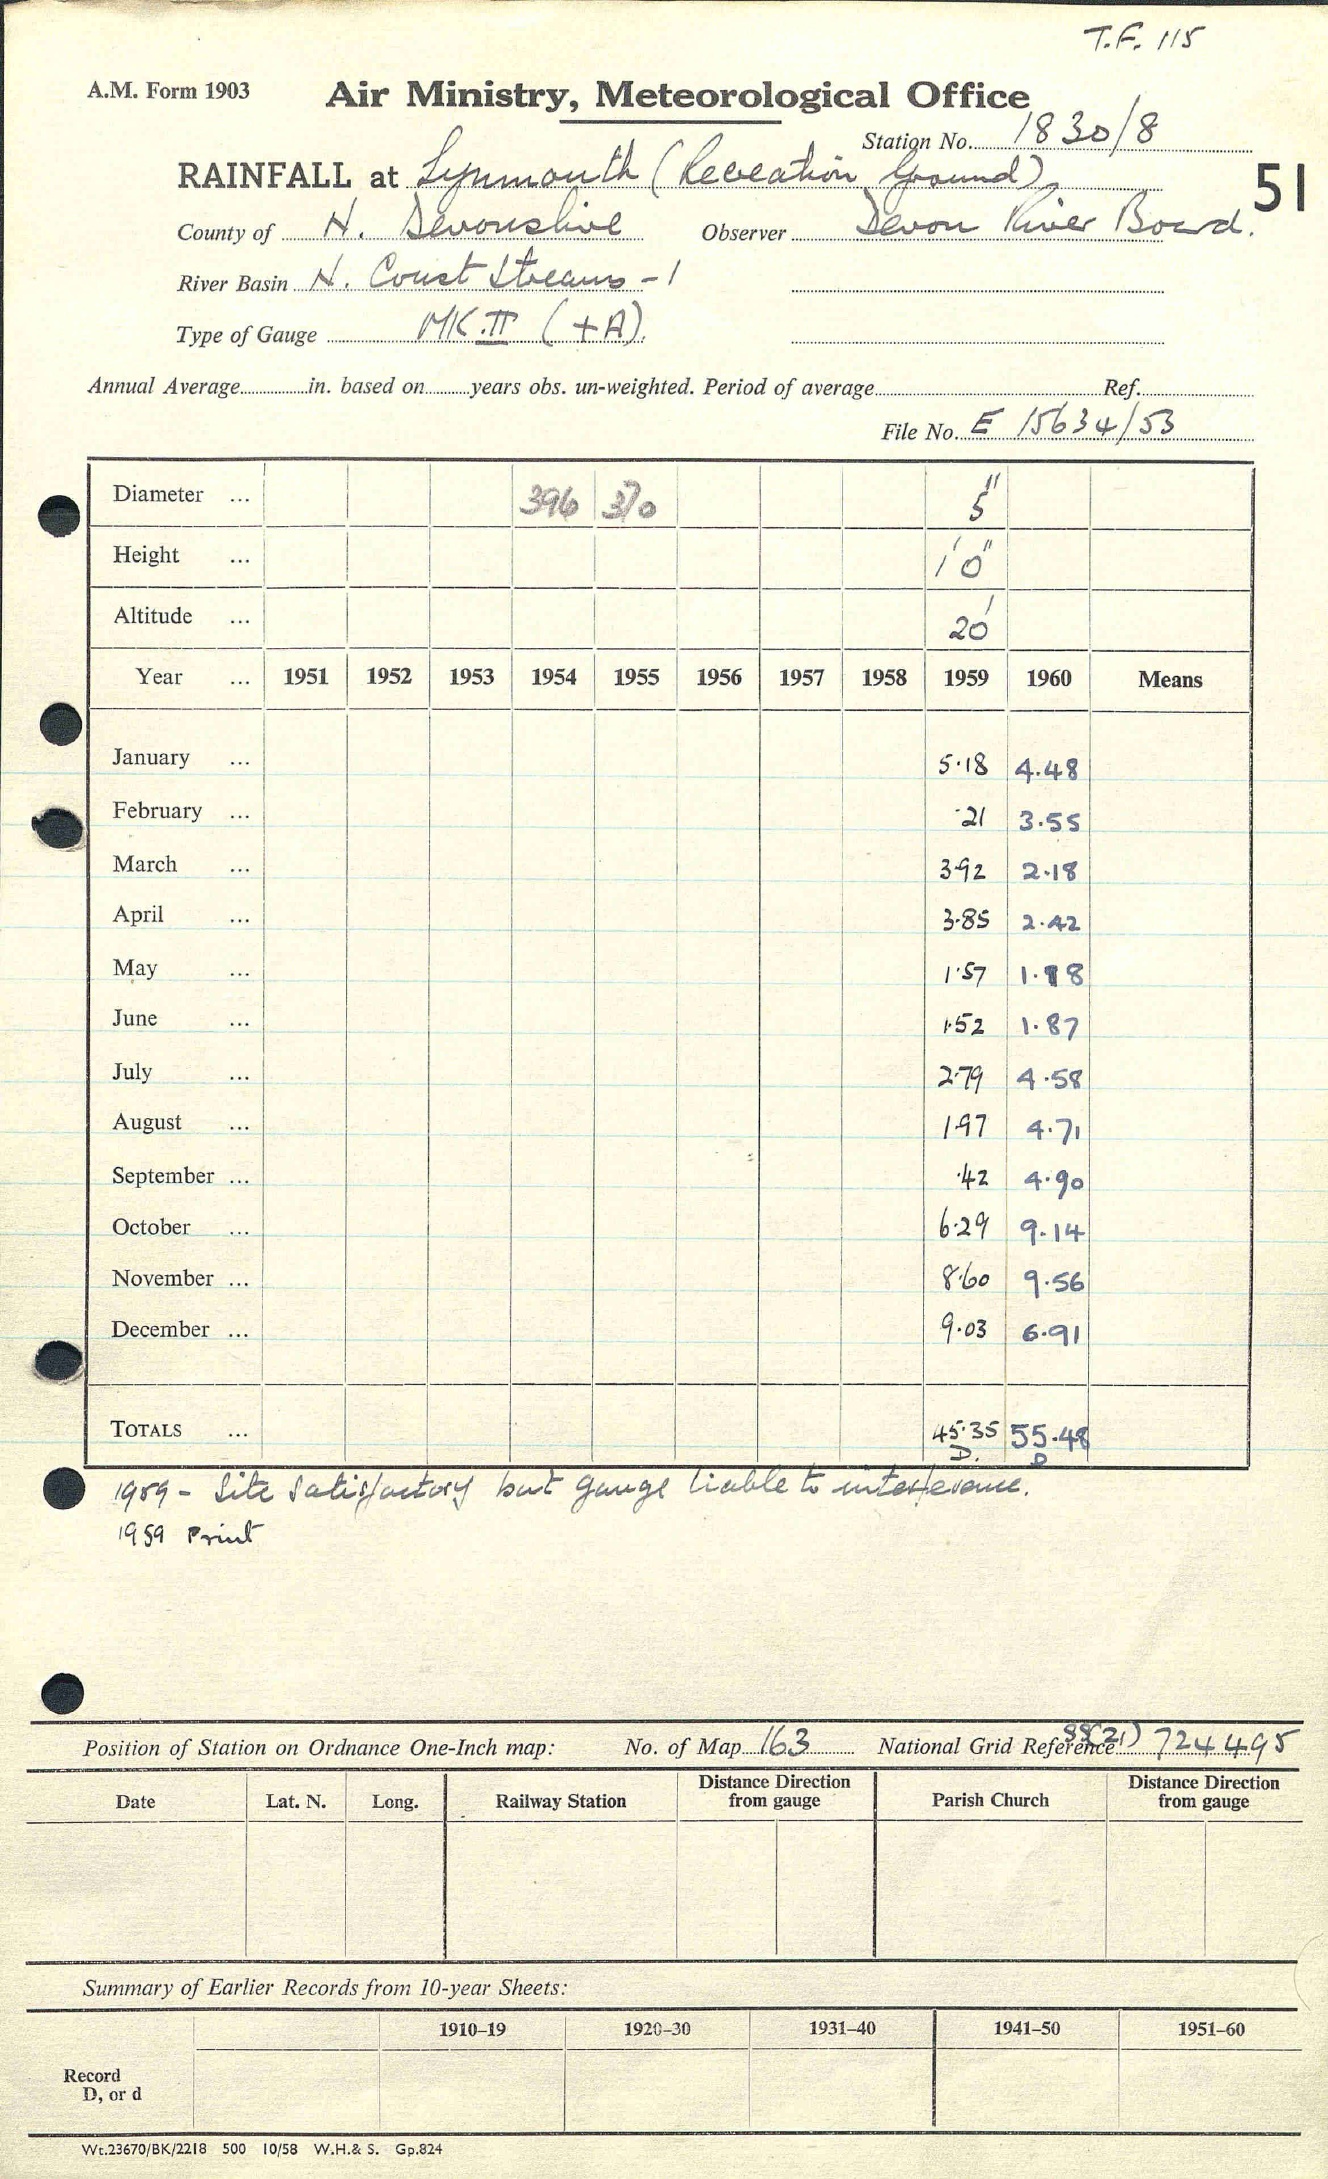 T.F. 115
A.M. Form 1903 Air Ministry, Meteorological Office
Station No. 1830/8
RAINFALL at Lynmouth (Recreation Ground) 51
County of N. Devonshire Observer Devon River Board.
River Basin N. Coast Streams - 1
Type of Gauge MK.II (+A).
Annual Average in. based on years obs. un-weighted. Period of average Ref.
File No. E 15634/53
Diameter ... 396 370 5"
Height ... 1' 0"
Altitude ... 20'
Year ... 1951 1952 1953 1954 1955 1956 1957 1958 1959 1960 Means
January ... 5·18 4.48
February ... ·21 3.55
March ... 3·92 2.18
April ... 3·85 2.42
May ... 1·57 1.18
June ... 1·52 1.87
July ... 2·79 4.58
August ... 1·97 4.71
September ... ·42 4.90
October ... 6·29 9.14
November ... 8·60 9.56
December ... 9·03 6.91
TOTALS ... 45·35 55.48
D. D
1959 - Site satisfactory but gauge liable to interference.
1959 Print
Position of Station on Ordnance One-Inch map: No. of Map 163 National Grid Reference (21) 724495
Date Lat. N. Long. Railway Station Distance Direction from gauge Parish Church Distance Direction from gauge
Summary of Earlier Records from 10-year Sheets:
1910–19 1920–30 1931–40 1941–50 1951–60
Record
D, or d
Wt.23670/BK/2218 500 10/58 W.H.& S. Gp.824